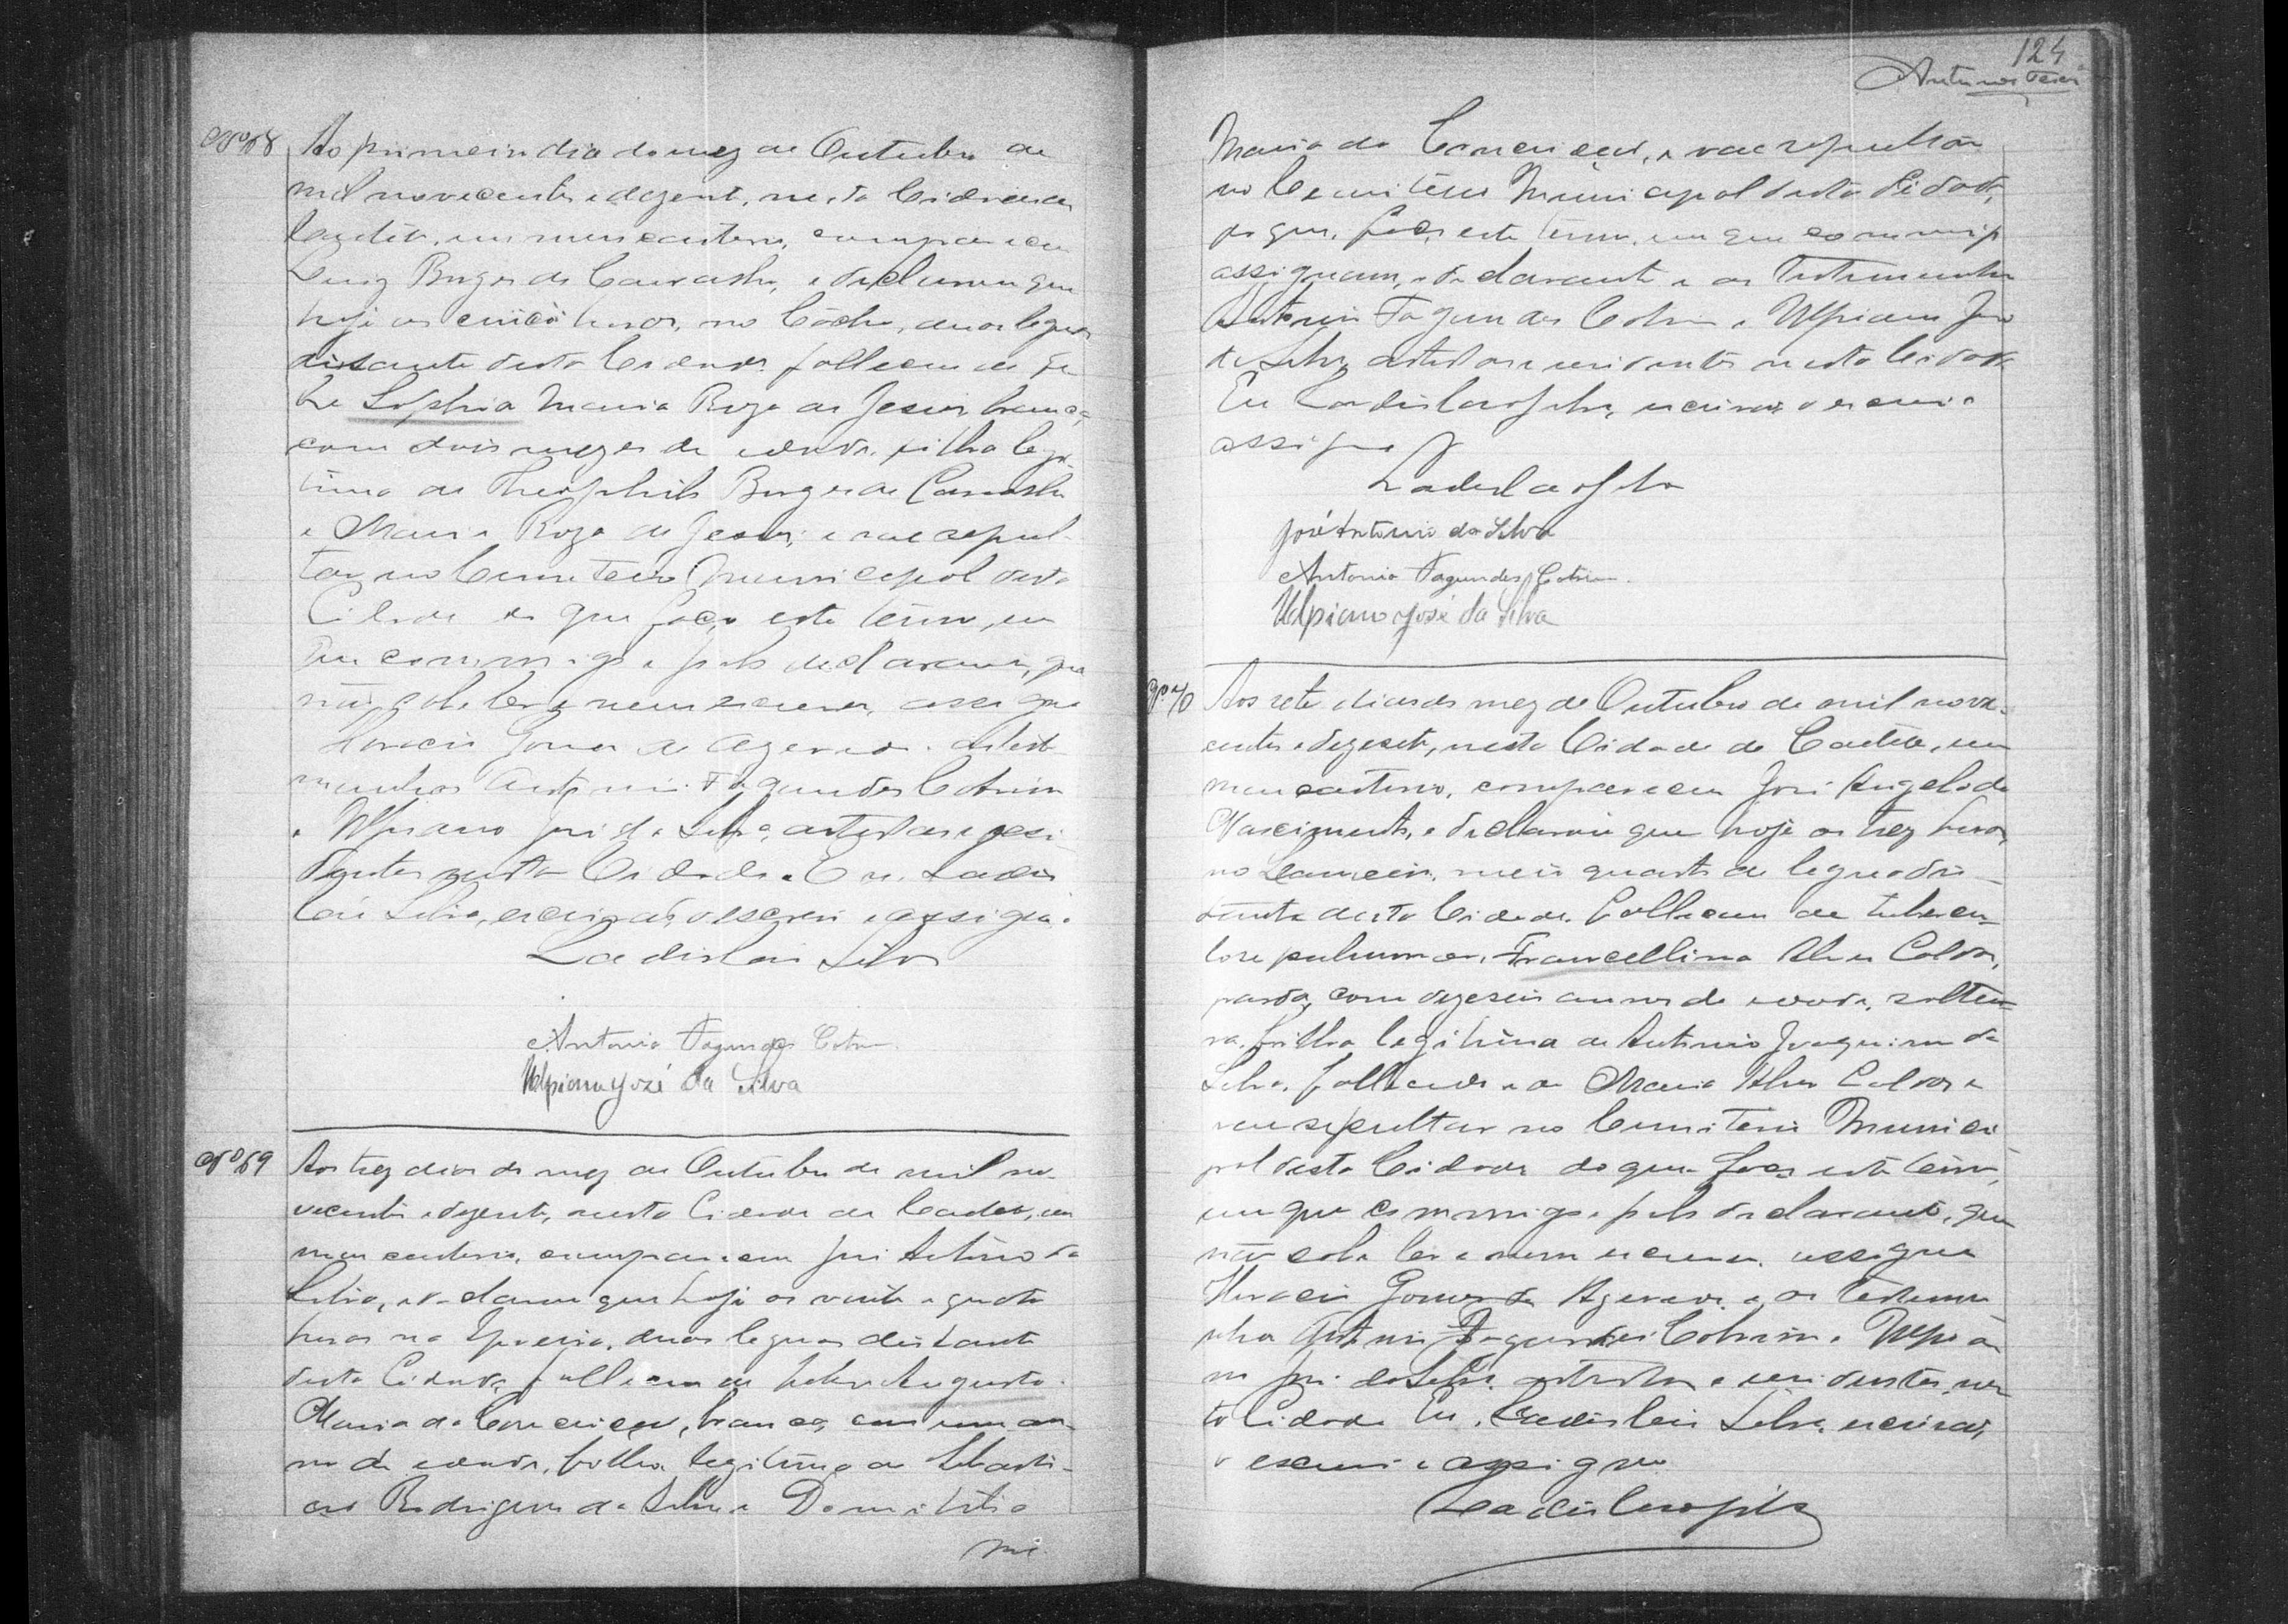 Nº 68 Ao primeiro dia do mez de Outubro de
mil novecentos e dezesete, nesta Cidade de
Caetité, em meu cartorio, compareceu
Luiz Borges de Carvalho, e declarou que
hoje as cinco horas, no Côcho, duas leguas
distante desta Cidade, falleceu de fe
bre Sophia Maria Roza de Jesus, branca,
com dois mezes de edade, filha legi-
tima de Theophilo Borges de Carvalho
e Maria Roza de Jesus; e vae sepul-
tar no Cemiterio Municipal desta
Cidade do que faço este termo, em
que commigo e pelo declarante, que
não sabe ler e nem escrever, assigna
Horacio Gomes de Azevedo. as teste
munhas Antonio Fagundes Cotrim
e Ulpiano José da Silva, artistas e resi-
dentes nesta Cidade. Eu Ladis
láo Silva, escrivão, o escrevi e assigno.
Ladisláo Silva
Antonio Fagundes Cotrim.
Ulpiano José da Silva
Nº 69 Aos trez dias do mez de Outubro de mil no-
vecentos e dezesete, nesta Cidade de Caetité, em
meu cartorio, compareceu José Antonio da
Silva, e declarou que hoje as vinte e quatro
horas na duas leguas distante
desta Cidade, falleceu de febre Augusta
Maria da Conceição, branca, com um an-
no de edade, filha legitima de Sebasti-
ão Rodrigues da Silva e Domitilia
124
Antunes
Maria da Conceição, e vae sepultar
no Cemiterio Municipal desta Cidade,
do que, faço este termo, em que commigo
assignam, o declarante e as testemunhas
Antonio Fagundes Cotrim e Ulpiano José
da Silva, artistas e residentes nesta Cidade
Eu Ladislao Silva, escrivão, o escrevi e
assigno
Ladislao Silva
José Antonio da Silva
Antonio Fagundes Cotrim.
Ulpiano José da Silva
Nº 70 Aos sete dias do mez de Outubro de mil nove-
centos e dezesete, nesta Cidade de Caetité, em
meu cartorio, compareceu José Angelo do
Nascimento, e declarou que hoje as trez horas,
no meio quarto de legua dis-
tante desta Cidade. falleceu de tubercu-
lose pulmonar, Francellina Alves
parda, com dezeseis annos de edade, soltei-
ra, filha legitima de Antonio Joaquim da
Silva, fallecido e de Maria Alves e
vae sepultar no Cemiterio Munici
pal desta Cidade do que faço este termo,
em que commigo e pelo declarante, que
não sabe ler e nem escrever, assigna
Horacio Gomes de Azevedo, e as testemu
nhas Antonio Fagundes Cotrim e Ulpia
no José da Silva artistas e residentes nes
ta Cidade Eu, Ladisláo Silva, escrivão,
o escrevi e assigno
Ladislao Silva